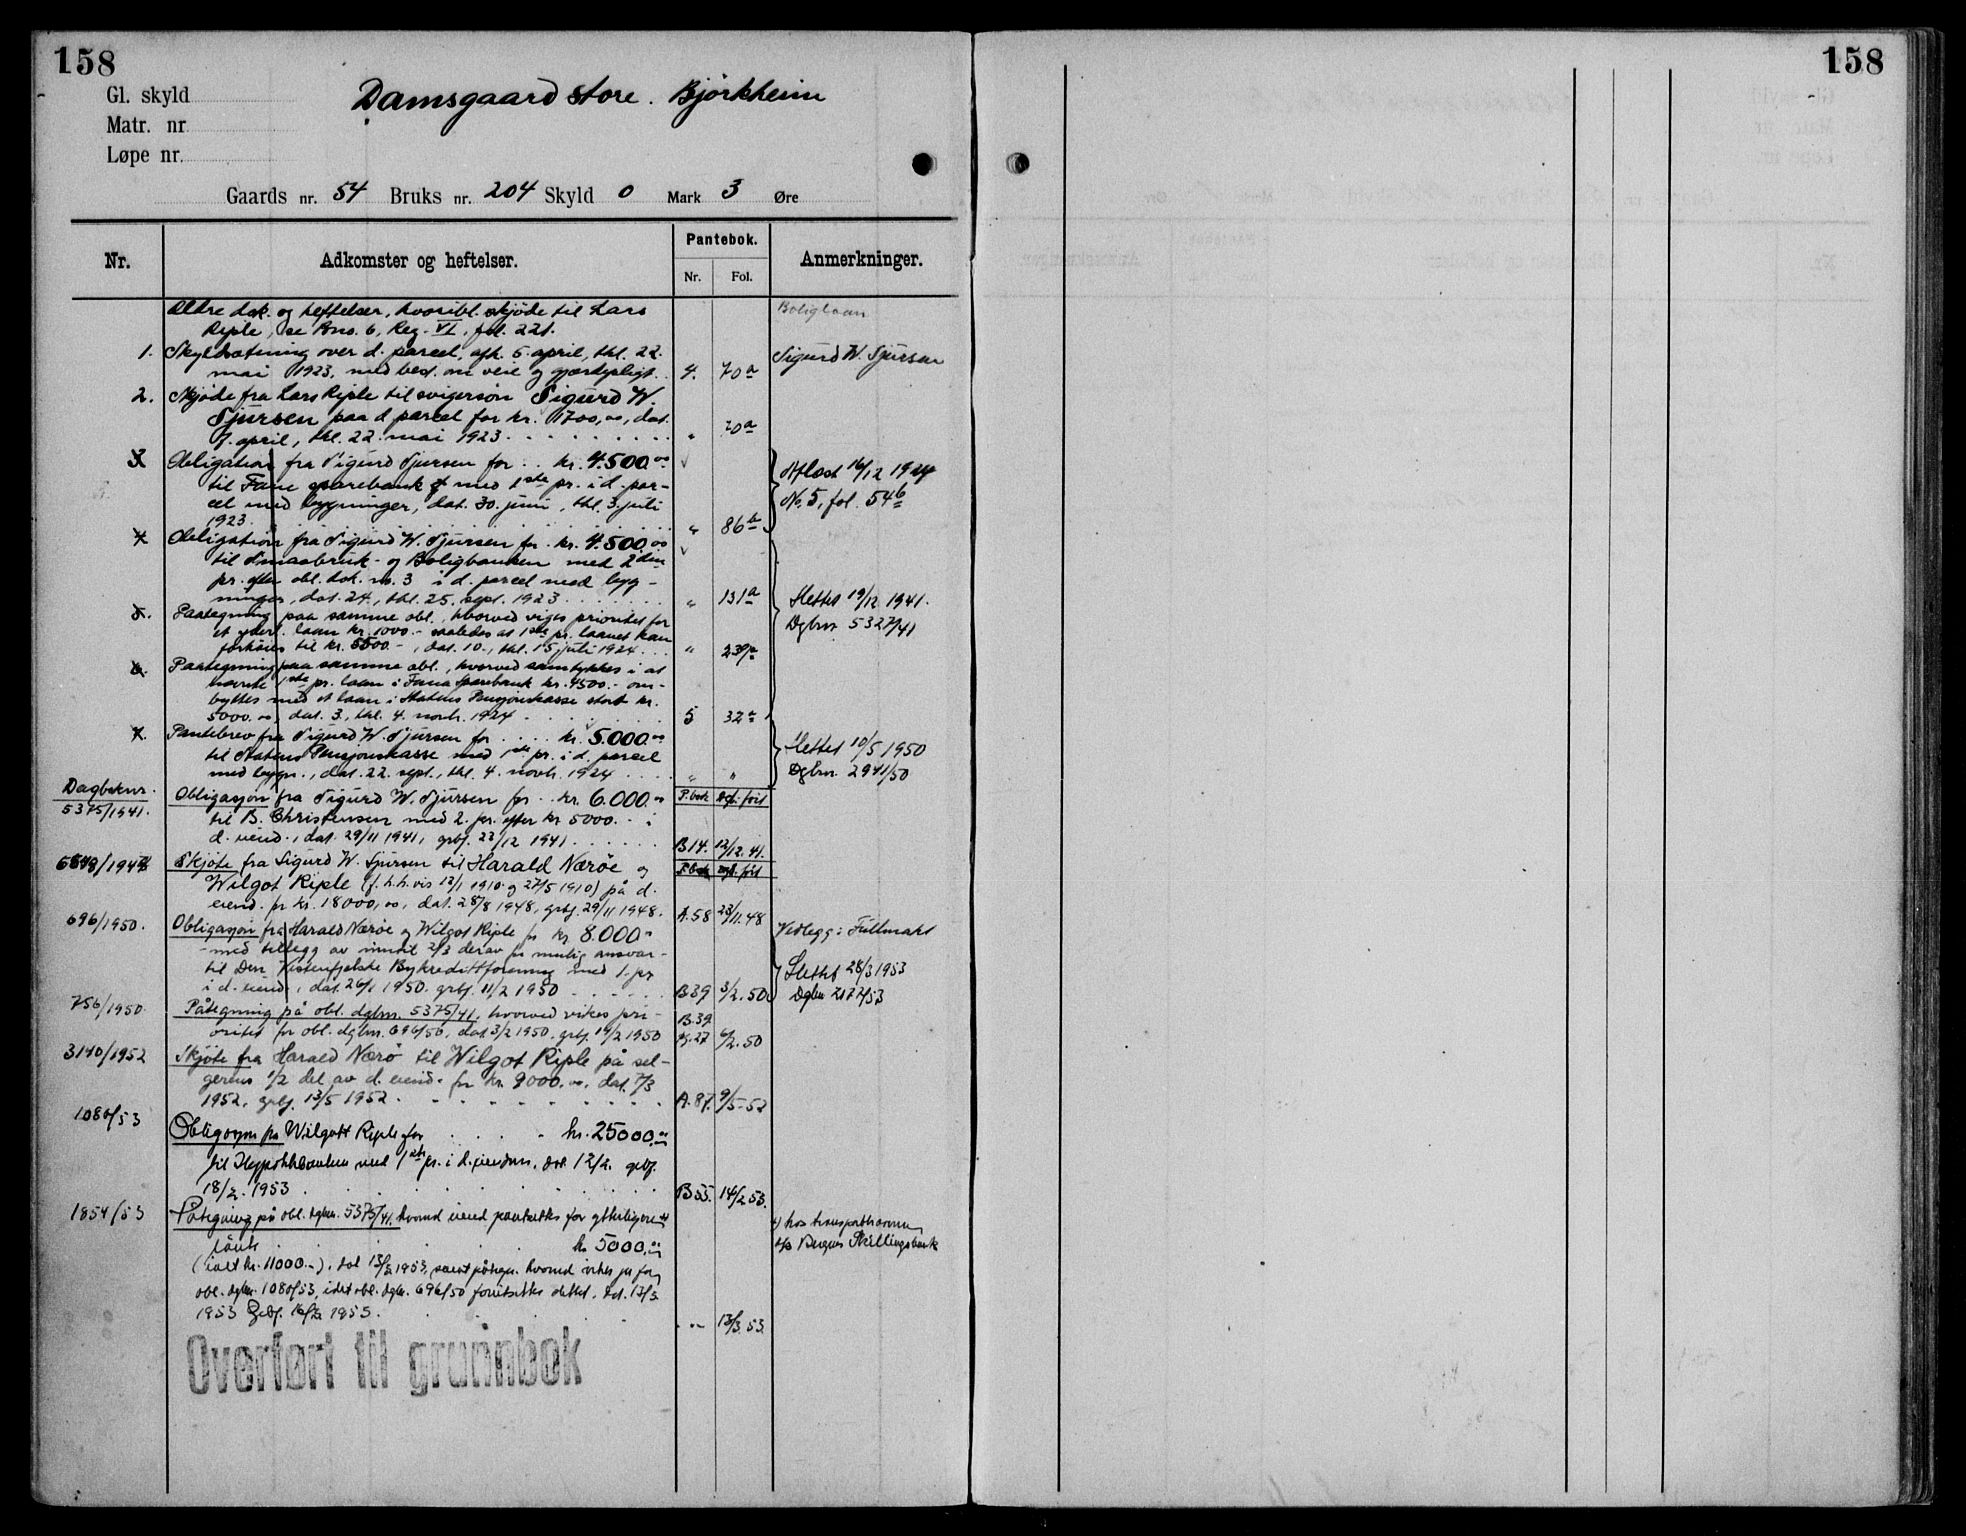 158
158
Gl. skyld
Damsgaard store. Bjørkheim
Matr. nr
Løpe nr.
Gaards nr. 54 Bruks nr. 204 Skyld 0 Mark 3 Øre
Nr.
Adkomster og heftelser.
Pantebok.
Nr. Fol.
Anmerkninger.
Ældre dok. og heftelser, hvoribl. skjøde til Lars
Riple, se Bno. 6, Reg. VI, fol. 221.
Boliglaan
1. Skyldsætning over d. parcel, afh. 5. april, thl. 22.
mai 1923, med best. om veie og gjærdepligt. 4. 70a
Sigurd W. Sjursen
2. Skjøde fra Lars Riple til svigersøn Sigurd W.
Sjursen paa d. parcel for kr. 1700,00, dat.
7. april, thl. 22. mai 1923 . . . " 70a
3. Obligation fra Sigurd Sjursen for . . kr. 4.500.00
til Fane sparebank med 1ste pr. i d. par-
cel med bygninger, dat. 30. juni, thl. 3. juli
1923. " 86b
Aflæst 16/12 1924
No. 5, fol. 54b
4. Obligation fra Sigurd W. Sjursen for . kr. 4.500.00
til Smaabruk- og Boligbanken med 2den
pr. efter obl. dok. no. 3 i d. parcel med byg-
ninger, dat. 24., thl. 25. sept. 1923 . . . " 131a
Slettet 19/12 1941.
Dgbnr. 5327/41
5. Paategning paa samme obl., hvorved viges prioritet for
et yderl. laan kr. 1000.- saaledes at 1ste pr. laanet kan
forhøies til kr. 5500.-, dat. 10., thl. 15. juli 1924 . . . "
6. Paategning paa samme obl., hvorved samtykkes i at
nævnte 1ste pr. laan i Fana Sparebank kr. 4500.- om-
byttes med et laan i Statens Pensjonskasse stort kr.
5000.00, dat. 3., thl. 4. novbr. 1924 5 32a
7. Pantebrev fra Sigurd W. Sjursen for . . . kr. 5.000.00
til Statens Pensjonskasse med 1ste pr. i d. parcel
med bygn., dat. 22. sept., thl. 4. novbr. 1924 . . . " "
Slettet 10/5 1950
Dgbnr. 2941/50
Dagboknr.
5375/1941.
P.bok Dgb. ført
Obligasjon fra Sigurd W. Sjursen for . . kr. 6.000.00
til B. Christensen med 2. pr. efter kr 5000.- i
d. eiend., dat. 29/11 1941, grbf. 22/12 1941 . . . B14. 12/12.41.
P.bok Dgb. ført
Skjøte fra Sigurd W. Sjursen til Harald Nærøe og
Wilgot Riple (f. h.h.vis 12/1 1910 og 27/5 1910) på d.
eiend. for kr. 18000,00, dat. 28/8 1948, grbf. 29/11 1948. A.58 23/11.48
696/1950.
Obligasjon fra Harald Nærøe og Wilgot Riple for kr 8.000.-
- med tillegg av inntil 2/3 derav for mulig ansvar -
til Den Vestenfjelske Bykredittforening med 1. pr
i d. eiend., dat. 26/1 1950. grbf. 11/2 1950 . . . B39 3/2.50
Vedlegg: Fullmakt
Slettet 28/3 1953
Dgbnr 2177/53
756/1950.
Påtegning på obl. dgbnr. 5375/41, hvorved vikes pri- B.39
oritet for obl. dgbnr. 696/50, dat. 3/2 1950, grbf. 14/2 1950 6/2.50
3140/1952
Skjøte fra Harald Nærø til Wilgot Riple på sel-
gerens 1/2 del av d. eiend. for kr. 9000.00, dat. 7/3
1952, grbf. 13/5 1952. . . A.87. 9/5-52
1080/53
Obligasjon fra Wilgott Riple for . . . kr. 25000.00
til Hypotekbanken med 1ste pr. i d. eiendom. dat. 12/2. grbf.
18/2. 1953 . . . B55. 14/2 53.
1854/53
Påtegning på obl. dgbnr. 5375/41, hvorved eiend pantsettes for ytterligere x)
lånt . . . kr. 5000.00
x) hos transporthaveren
A/S Bergens Skillingsbank
(ialt kr. 11000.-). dat 13/2 1953, samt påtegn. hvorved vikes pr for
obl. dgbnr. 1080/53, idet obl. dgbnr. 696/50 forutsettes slettet. dat. 13/3
1953 Grbf. 16/3 1953. " 13/3.53.
Overført til grunnbok